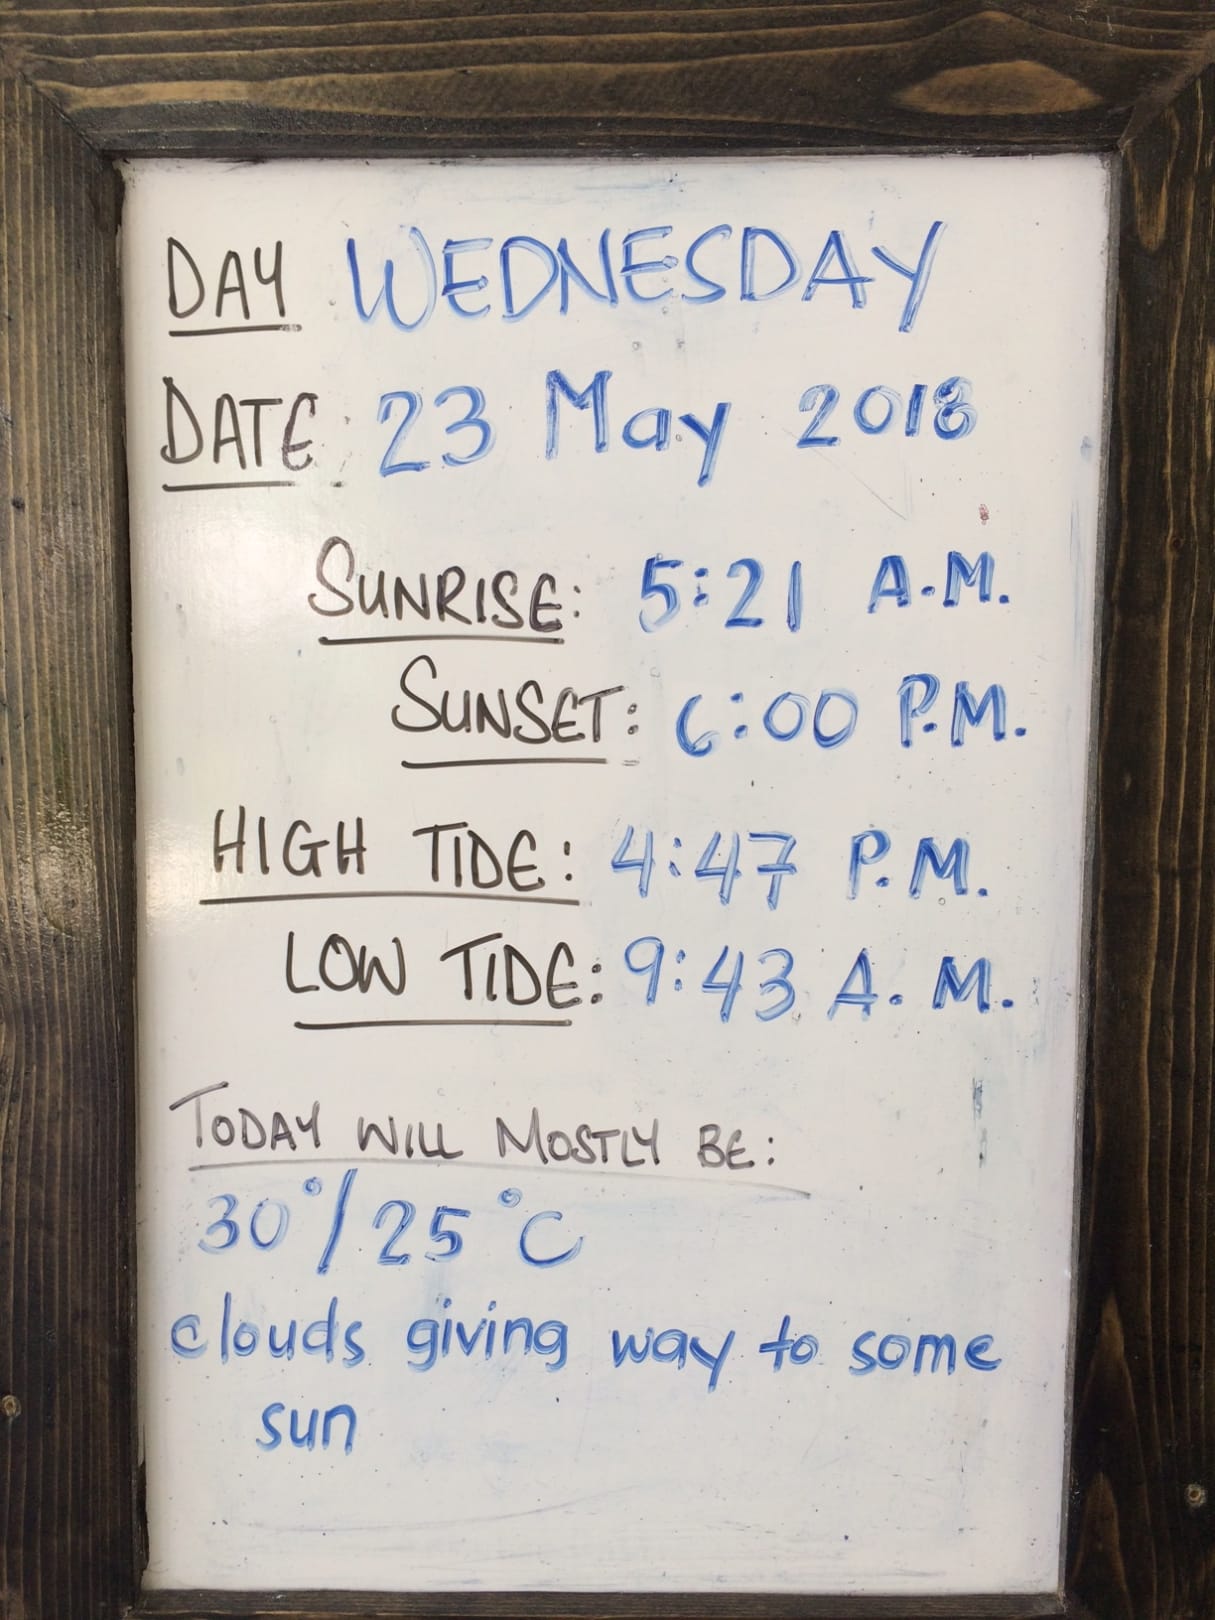 DAY WEDNESDAY
DATE: 23 May 2018
SUNRISE: 5:21 A.M.
SUNSET: 6:00 P.M.
HIGH TIDE: 4:47 P.M.
LOW TIDE: 9:43 A.M.
TODAY WILL MOSTLY BE:
30°/25°C
clouds giving way to some
sun